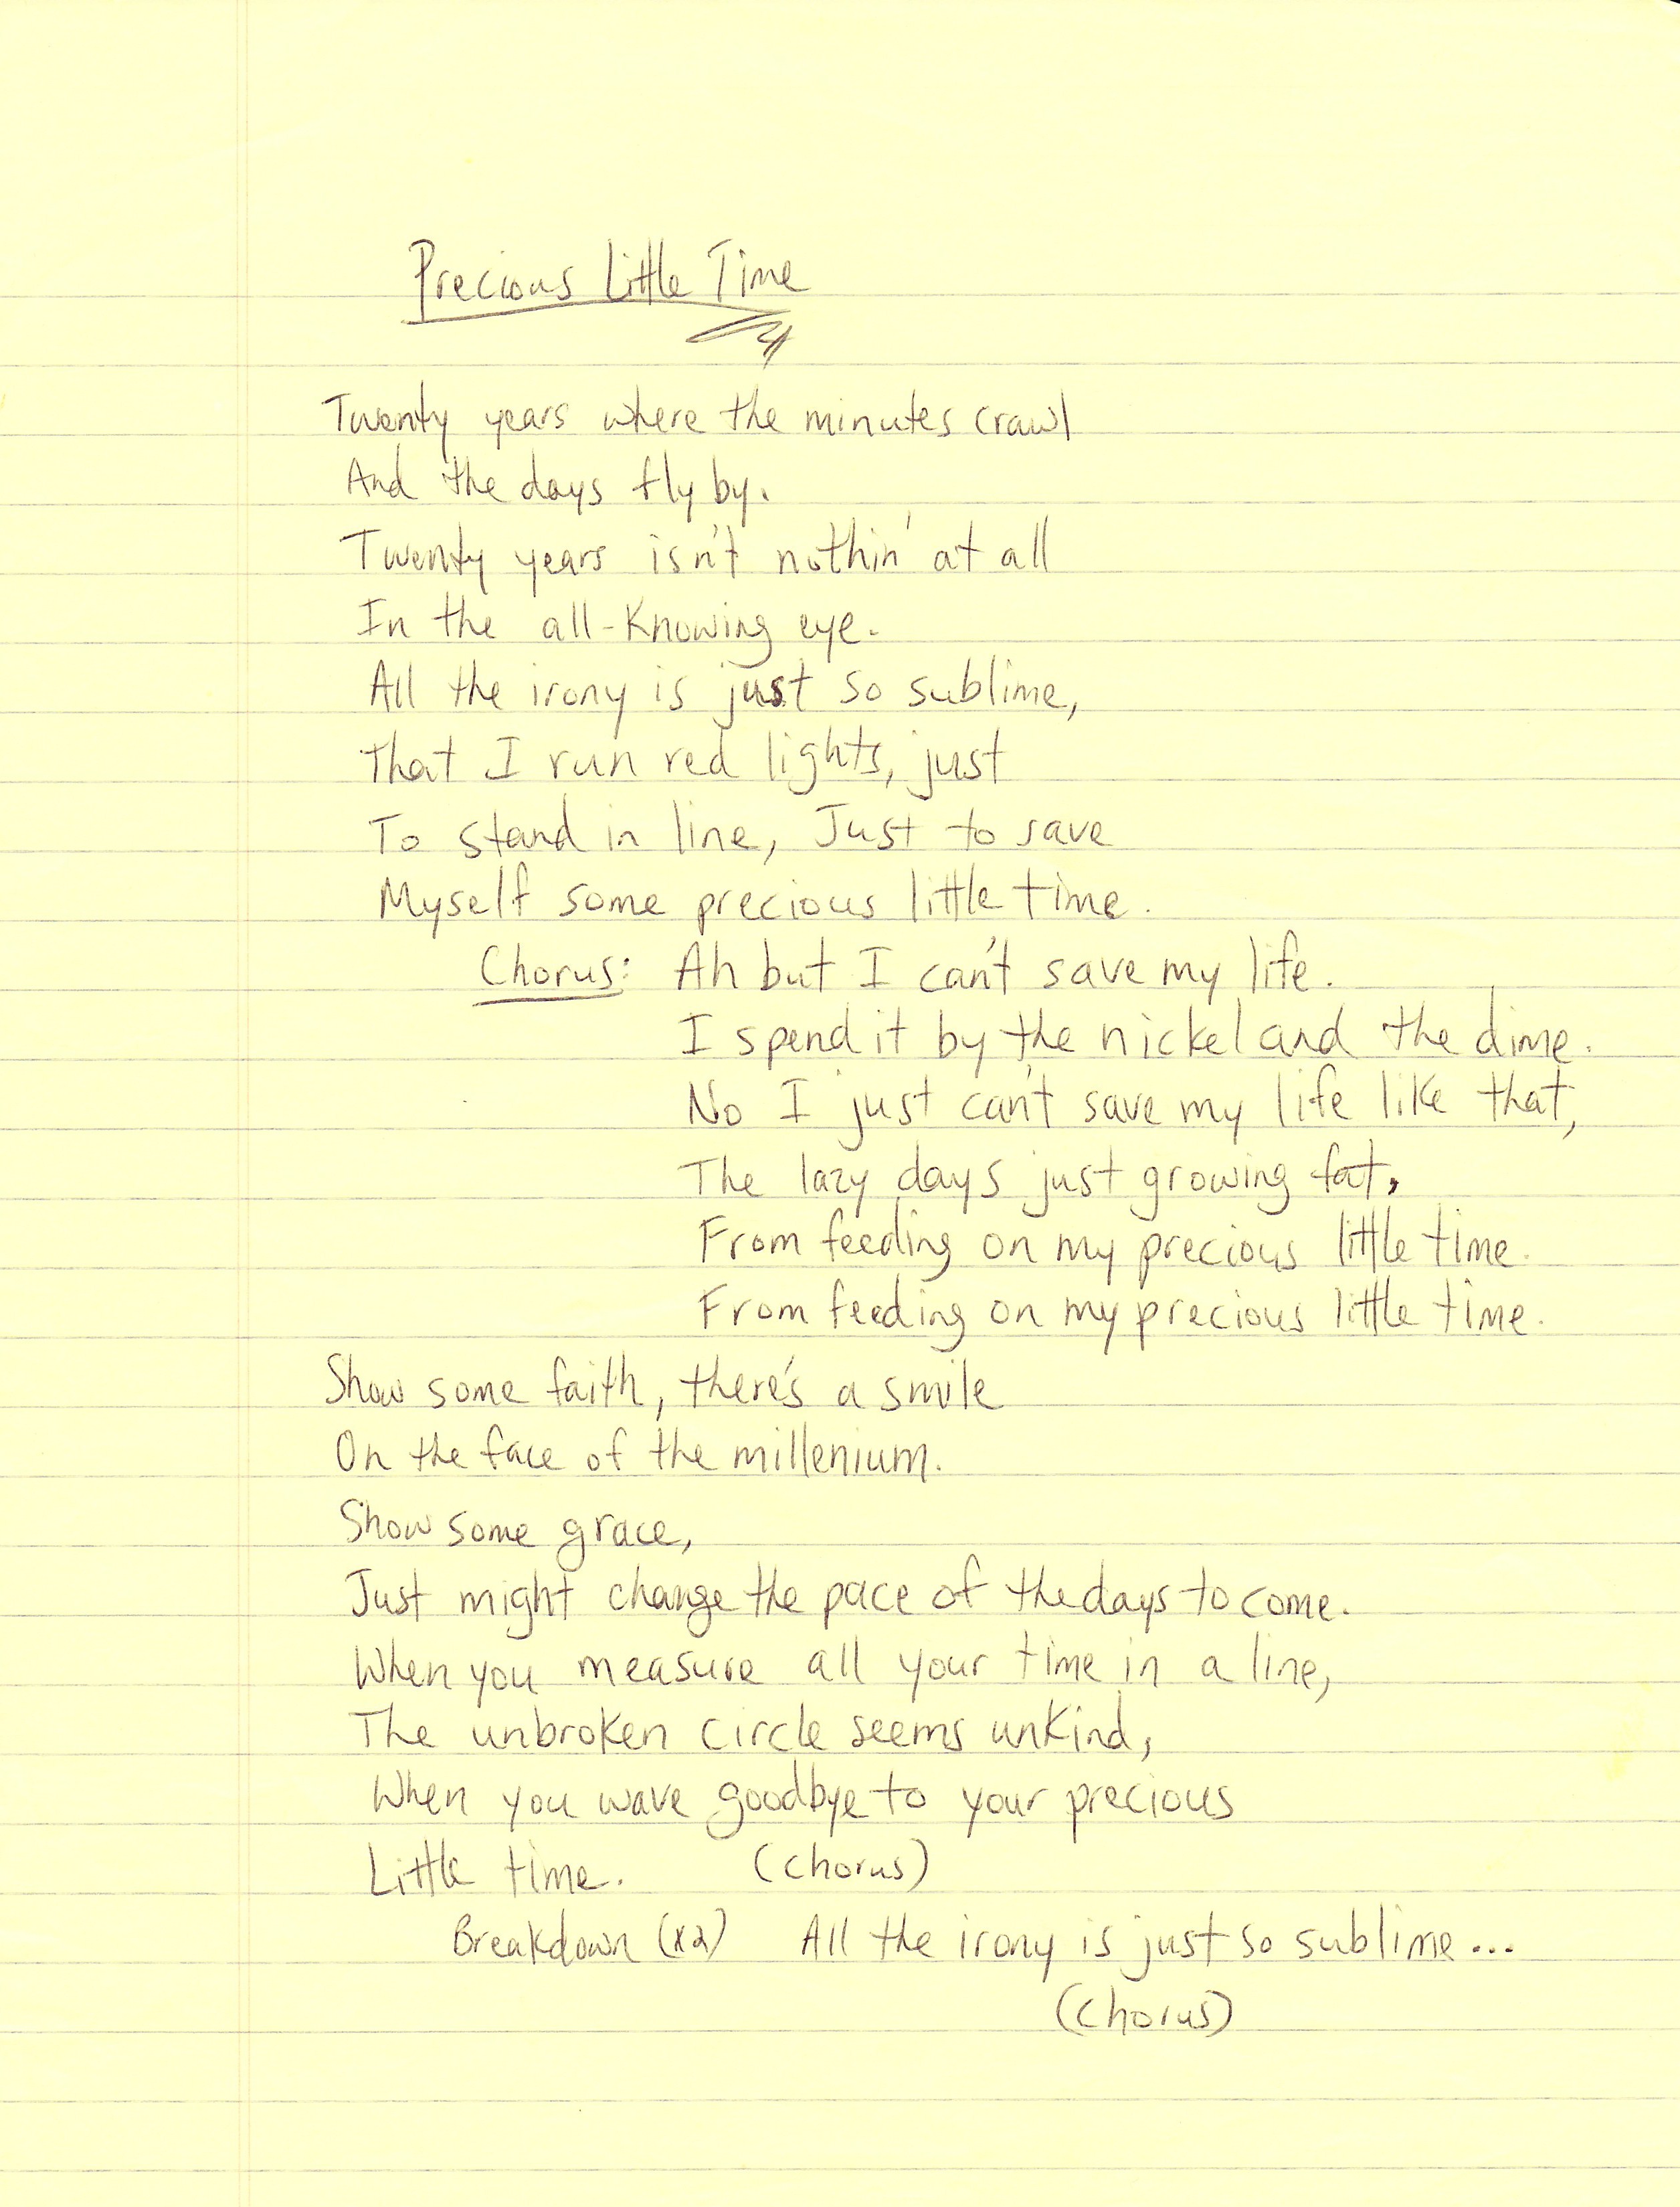 Precious Little Time
Twenty years where the minutes crawl
And the days fly by.
Twenty years isn't nothin' at all
In the all-Knowing eye.
All the irony is just so sublime,
That I run red lights, just
To stand in line, Just to save
Myself some precious little time.
Chorus: Ah but I can't save my life.
I spend it by the nickel and the dime.
No I just can't save my life like that,
The lazy days just growing fat,
From feeding on my precious little time.
From feeding on my precious little time.
Show some faith, there's a smile
On the face of the millenium.
Show some grace,
Just might change the pace of the days to come.
When you measure all your time in a line,
The unbroken circle seems unkind,
When you wave goodbye to your precious
Little time. (Chorus)
Breakdown (x2) All the irony is just so sublime...
(Chorus)